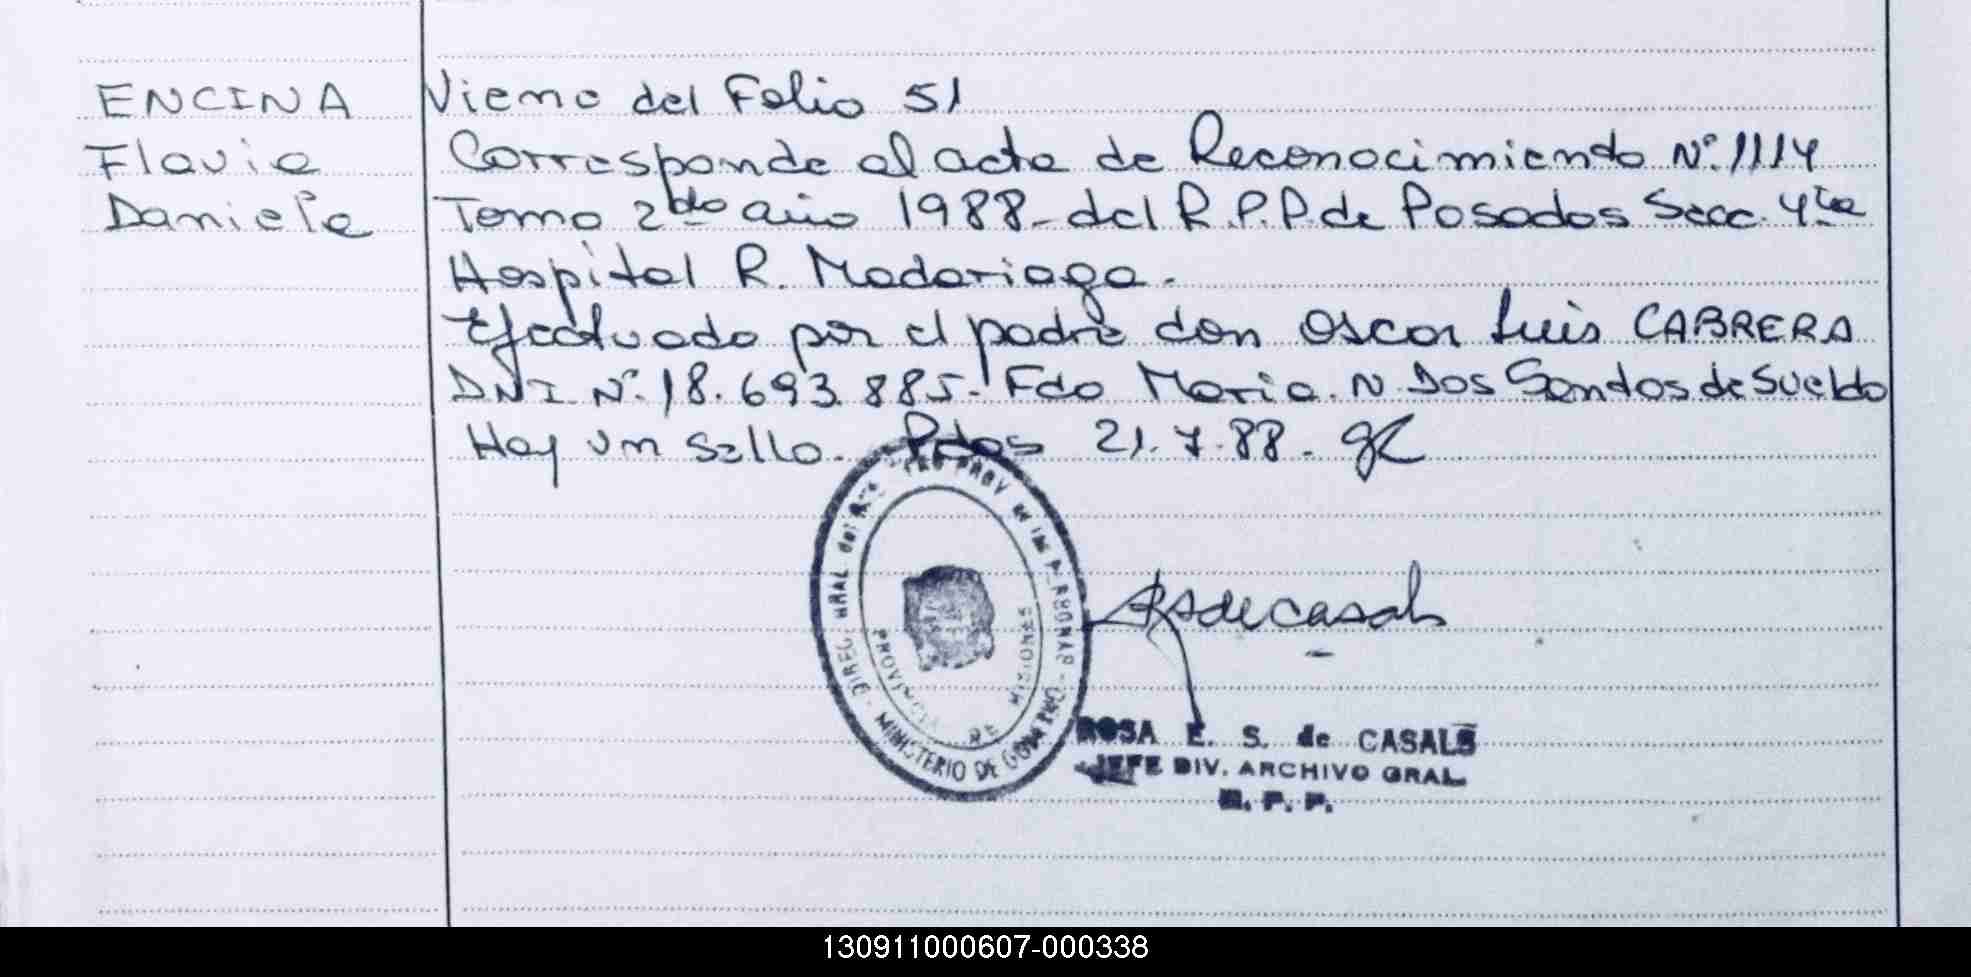 ENCINA
Flavia
Daniela
Viene del Folio 51
Corresponde al acta de Reconocimiento Nº 1114
Tomo 2do año 1988 - del R.P.P. de Posadas Secc. 4ta
Hospital R. Madariaga.
Efectuado por el padre don Oscar Luis CABRERA
DNI Nº 18.693.885. Fdo Maria. N. Dos Santos de Sueldo
Hay un sello. Pdas 21.7.88.
DIREC GRAL del PROV de las PERSONAS - MINISTERIO DE GOBIERNO -
PROVINCIA DE MISIONES
RSdecasals
ROSA E. S. de CASALS
JEFE DIV. ARCHIVO GRAL.
R. P. P.
130911000607-000338